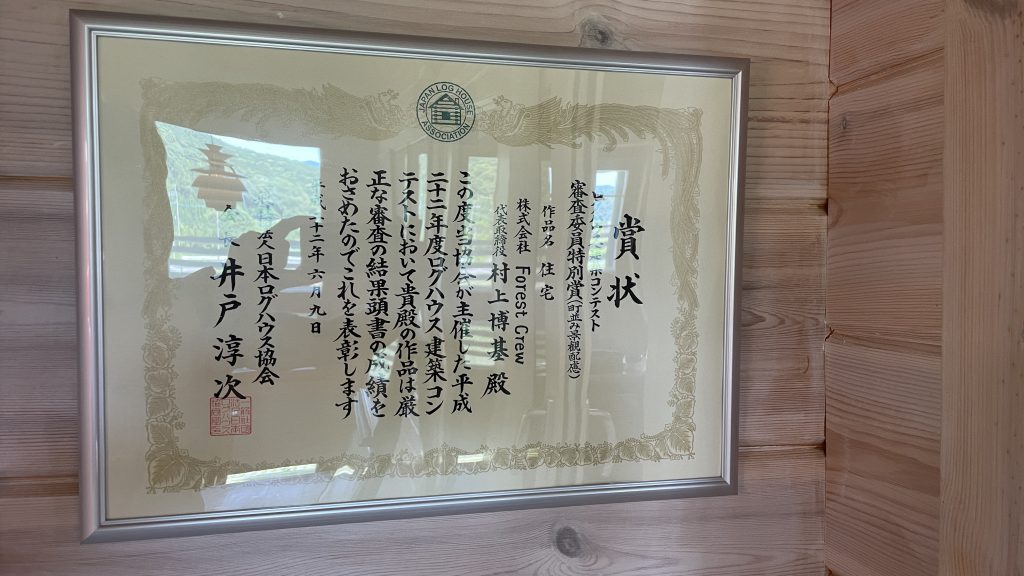 JAPAN LOG HOUSE ASSOCIATION
賞状
コンテスト
審査委員特別賞(町並み景観配慮)
作品名 住宅
株式会社 Forest Crew
代表取締役 村上博基 殿
この度当協会が主催した平成
二十二年度ログハウス建築コン
テストにおいて貴殿の作品は厳
正な審査の結果頭書の成績を
おさめたのでこれを表彰します
十二年六月九日
日本ログハウス協会
井戸淳次